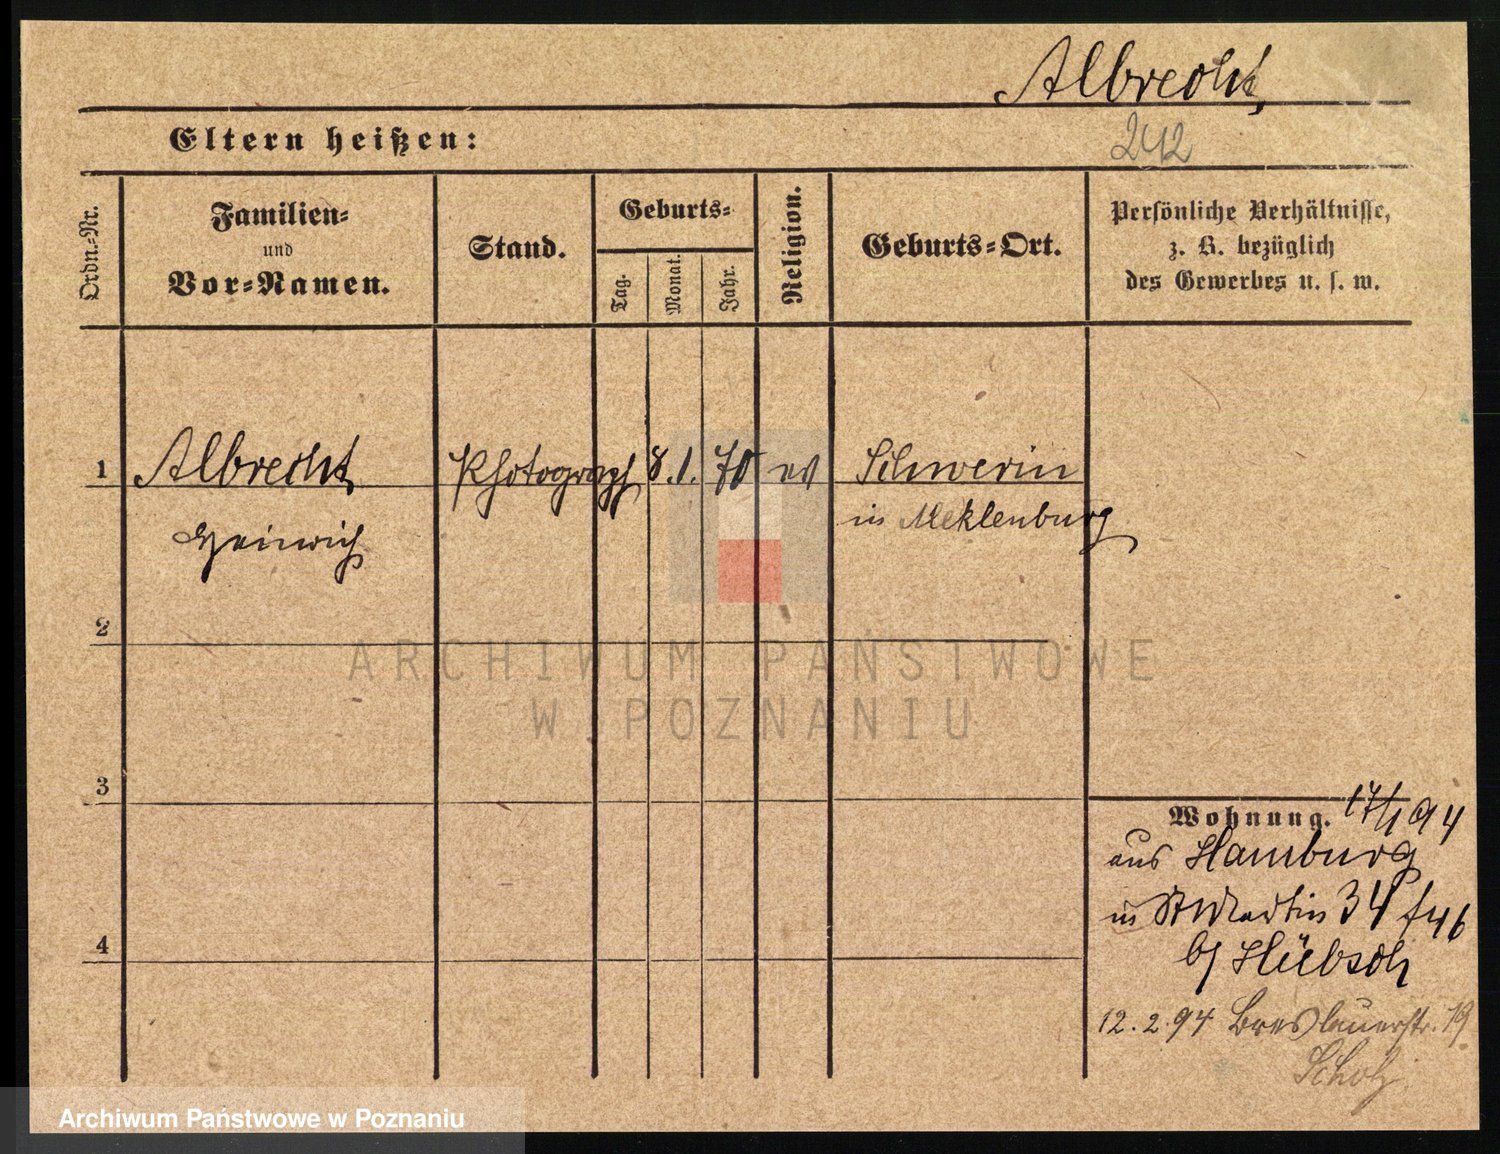 Albrecht,
242
Eltern heißen:
Ordn.-Nr.
Familien-
und
Vor-Namen.
Stand.
Geburts-
Tag.
Monat.
Jahr.
Religion.
Geburts-Ort.
Persönliche Verhältnisse,
z. B. bezüglich
des Gewerbes u. s. w.
1 Albrecht, Photograph 8. 1. 70 ev Schwerin
Heinrich in Meklenburg
2
ARCHIWUM PAŃSTWOWE
W POZNANIU
3
Wohnung. 17/1 94
aus Hamburg
in St Martin 34
b/ Hübsch
4
12. 2. 94 Breslauerstr. 19
Scholz
Archiwum Państwowe w Poznaniu